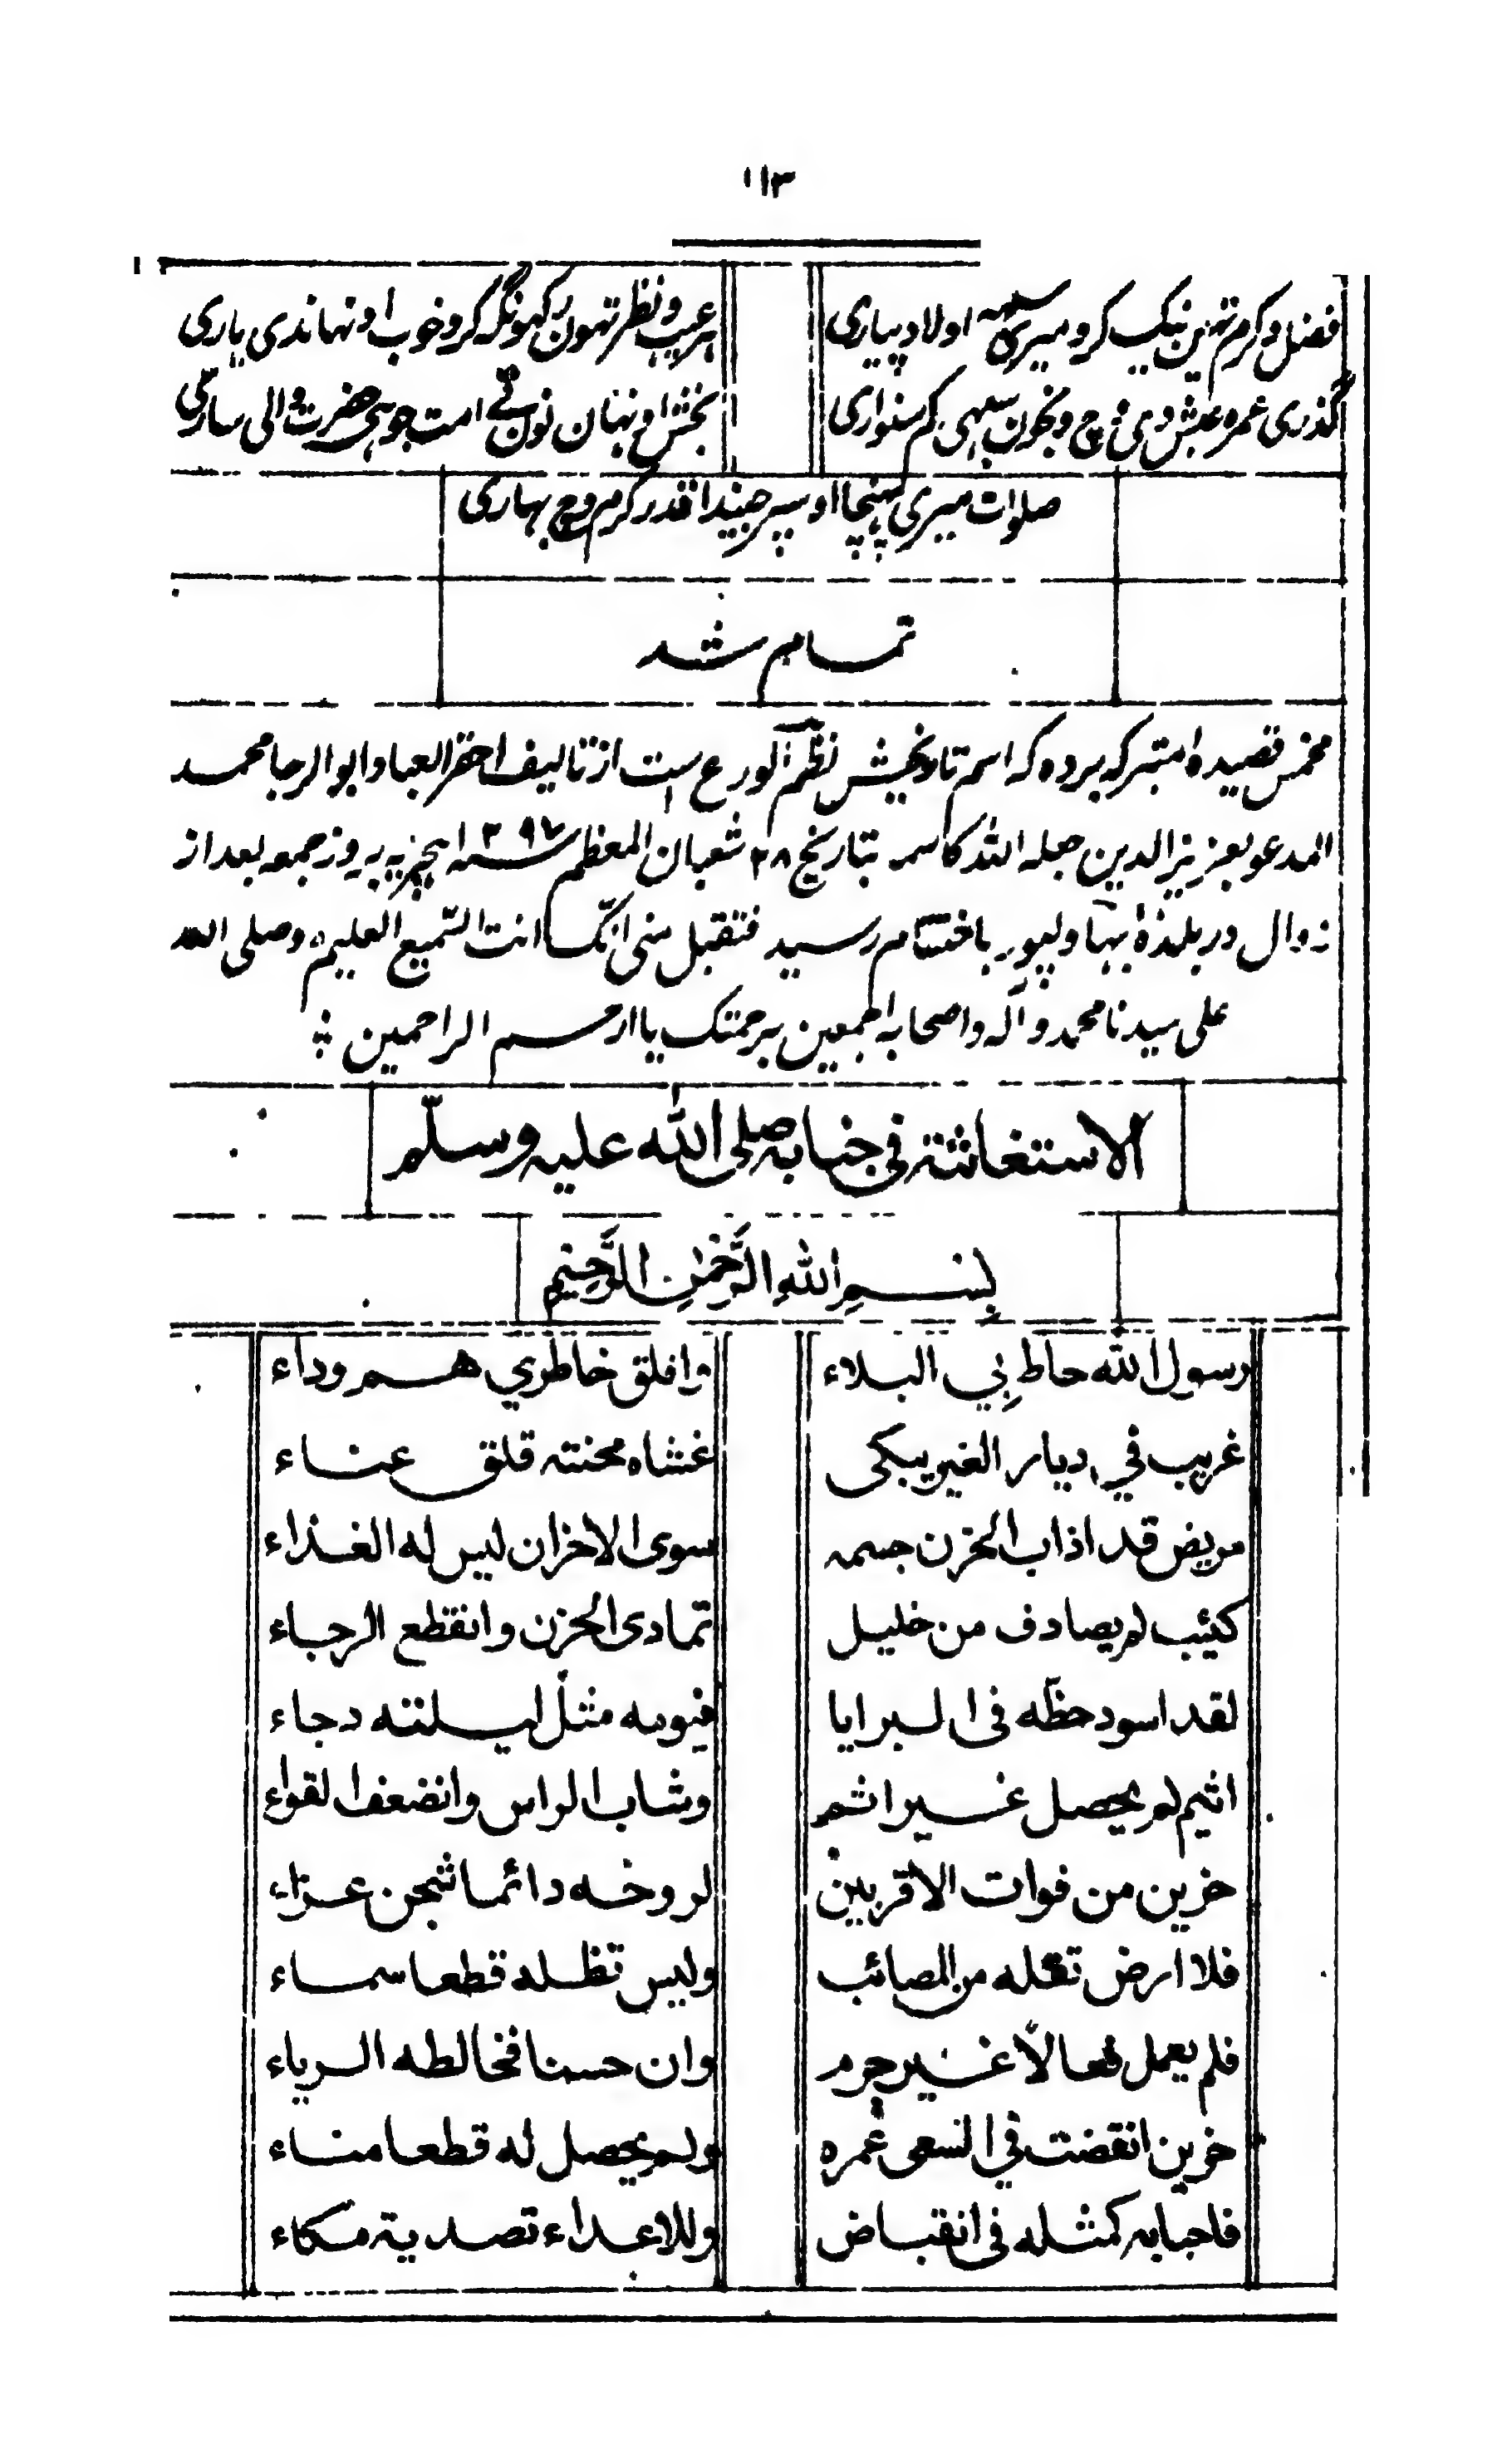 ۱۱۳
فضل و کرم تہین نیک کرو میری سبھہ اولاد پیاری
ہر عیب و نظر تہون رکہو نگہ کرو خوب اونہاندی یاری
گذری عمرہ عیش دی وچ ونجون سبہی کم سنواری
بخش اونہان نون تے امت جو ہی حضرت والی ساری
صلوات میری پہنچا اوسپر جیندا قدر کرم وچ بہاری
تمام شد
مخمس قصیدہ متبرکہ بردہ کہ اسم تاریخیش نظم الورع است از تالیف احقر العباد ابو الرجا محمد
المدعو بعزیز الدین جعلہ اللہ کاسمہ بتاریخ ۲۸ شعبان المعظم سنہ ہجریہ بروز جمعہ بعد از
زوال در بلدۂ بہاولپور باختتام رسید فتقبل منی انّک انت السّمیع العلیم وصلی اللہ
علی سیدنا محمد وآلہ واصحابہ اجمعین برحمتک یا ارحم الراحمین
الاستغاثة فی جنابہ صلی اللہ علیہ وسلّم
بِسْمِ اللهِ الرَّحْمٰنِ الرَّحِيْمِ
رسول الله حاط بِي البلاء
واقلق خاطري هم وداء
غريب في ديار الغير يبكى
غشاه محنته قلق عناء
مريض قد اذاب الحزن جسمه
سوى الاحزان ليس له الغذاء
كئيب لم يصادف من خليل
تمادى الحزن وانقطع الرجاء
لقد اسود حظّه فى البرايا
فيومه مثل ليلته دجاء
اثيم لم يحصل غير اثم
وشاب الراس وانضعف القواء
حزين من فوات الاقربين
لروحه دائما شجن عزاء
فلا ارض تقله من المصائب
وليس تظله قطعا سماء
فلم يعمل فعالا غير جرم
وان حسنا فخالطه الرياء
حزين انقضت في السعى عمره
ولم يحصل له قطعا مناء
فاحبابه كمثله فى انقباض
وللاعداء تصدية مكاء